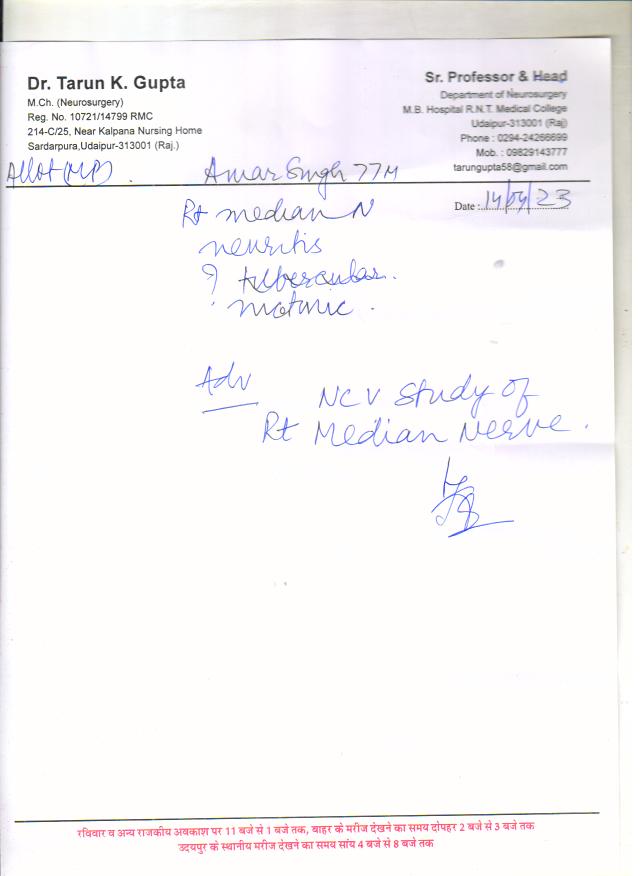 Dr. Tarun K. Gupta
M.Ch. (Neurosurgery)
Reg. No. 10721/14799 RMC
214-C/25, Near Kalpana Nursing Home
Sardarpura,Udaipur-313001 (Raj.)
Sr. Professor & Head
Department of Neurosurgery
M.B. Hospital R.N.T. Medical College
Udaipur-313001 (Raj)
Phone : 0294-24266699
Mob. : 09829143777
tarungupta58@gmail.com
Amar Singh 77M
Date : 14/04/23
Rt median N
neuritis
? tubercular.
Adv
NCV Study of
Rt Median Nerve.
रविवार व अन्य राजकीय अवकाश पर 11 बजे से 1 बजे तक, बाहर के मरीज देखने का समय दोपहर 2 बजे से 3 बजे तक
उदयपुर के स्थानीय मरीज देखने का समय सांय 4 बजे से 8 बजे तक